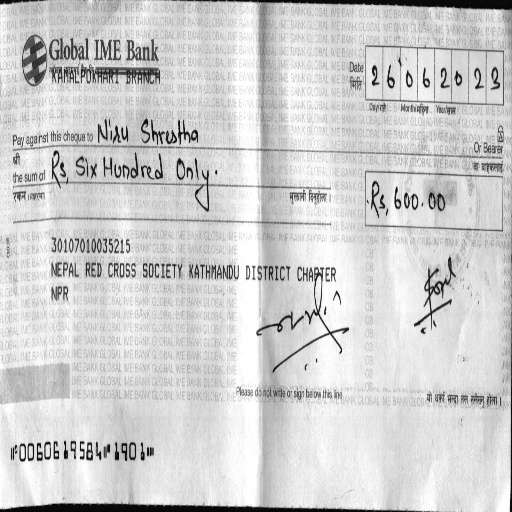 Global IME Bank
KAMALPOKHARI BRANCH
Date
मिति
26062023
Day/गते Month/महिना Year/साल
Pay against this cheque to Niru Shrestha
श्री
Or Bearer
वा वाहकलाई
the sum of Rs, Six Hundred Only.
रकम
Rs, 600.00
30107010035215
NEPAL RED CROSS SOCIETY KATHMANDU DISTRICT CHAPTER
NPR
Please do not write or sign below this line
⑈0060619584⑈1901⑈